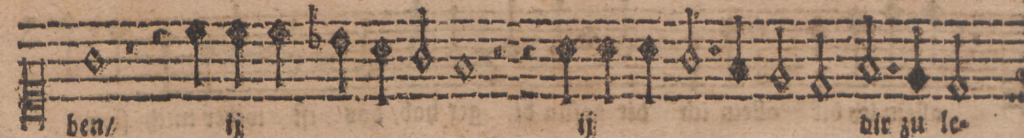 ben/ ij ij dir zu le-